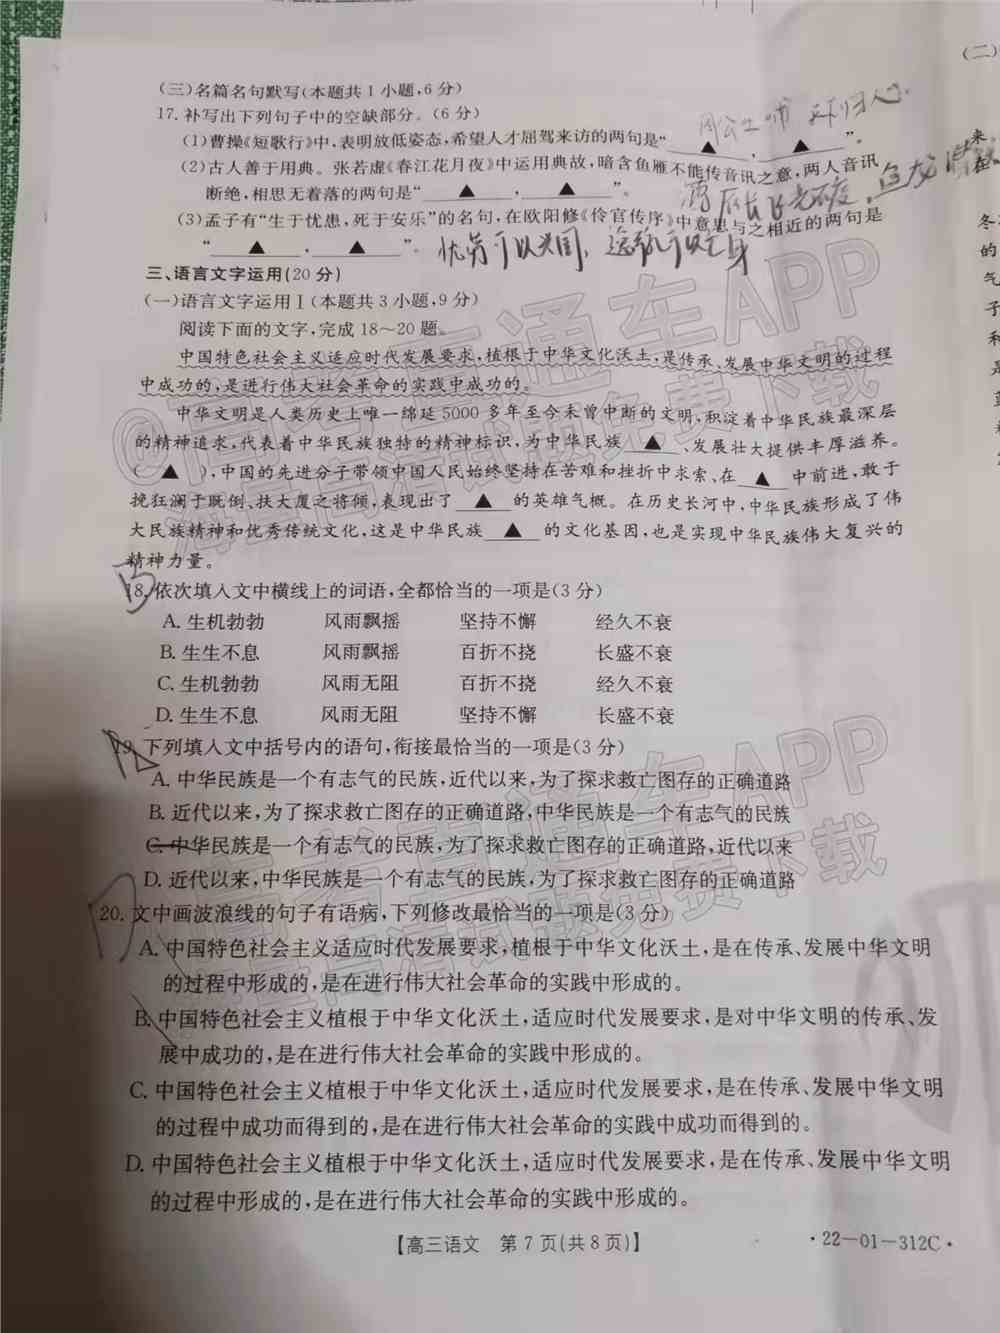 (三)名篇名句默写(本题共1小题,6分)
17.补写出下列句子中的空缺部分。(6分)
周公吐哺 天下归人心
(1)曹操《短歌行》中,表明放低姿态,希望人才屈驾来访的两句是“▲,▲”。
(2)古人善于用典。张若虚《春江花月夜》中运用典故,暗含鱼雁不能传音讯之意,两人音讯
断绝,相思无着落的两句是“▲,▲”。
鸿雁长飞光不度,鱼龙潜
(3)孟子有“生于忧患,死于安乐”的名句,在欧阳修《伶官传序》中意思与之相近的两句是
“▲,▲”。
忧劳可以兴国,逸豫可以亡身
三、语言文字运用(20分)
(一)语言文字运用Ⅰ(本题共3小题,9分)
阅读下面的文字,完成18~20题。
中国特色社会主义适应时代发展要求,植根于中华文化沃土,是传承、发展中华文明的过程
中成功的,是进行伟大社会革命的实践中成功的。
中华文明是人类历史上唯一绵延5000多年至今未曾中断的文明,积淀着中华民族最深层
的精神追求,代表着中华民族独特的精神标识,为中华民族▲、发展壮大提供丰厚滋养。
(▲),中国的先进分子带领中国人民始终坚持在苦难和挫折中求索、在▲中前进,敢于
挽狂澜于既倒、扶大厦之将倾,表现出了▲的英雄气概。在历史长河中,中华民族形成了伟
大民族精神和优秀传统文化,这是中华民族▲的文化基因,也是实现中华民族伟大复兴的
精神力量。
B
18.依次填入文中横线上的词语,全都恰当的一项是(3分)
A.生机勃勃 风雨飘摇 坚持不懈 经久不衰
B.生生不息 风雨飘摇 百折不挠 长盛不衰
C.生机勃勃 风雨无阻 百折不挠 经久不衰
D.生生不息 风雨无阻 坚持不懈 长盛不衰
19.下列填入文中括号内的语句,衔接最恰当的一项是(3分)
A.中华民族是一个有志气的民族,近代以来,为了探求救亡图存的正确道路
B.近代以来,为了探求救亡图存的正确道路,中华民族是一个有志气的民族
C.中华民族是一个有志气的民族,为了探求救亡图存的正确道路,近代以来
D.近代以来,中华民族是一个有志气的民族,为了探求救亡图存的正确道路
D
20.文中画波浪线的句子有语病,下列修改最恰当的一项是(3分)
A.中国特色社会主义适应时代发展要求,植根于中华文化沃土,是在传承、发展中华文明
的过程中形成的,是在进行伟大社会革命的实践中形成的。
B.中国特色社会主义植根于中华文化沃土,适应时代发展要求,是对中华文明的传承、发
展中成功的,是在进行伟大社会革命的实践中形成的。
C.中国特色社会主义植根于中华文化沃土,适应时代发展要求,是在传承、发展中华文明
的过程中成功而得到的,是在进行伟大社会革命的实践中成功而得到的。
D.中国特色社会主义植根于中华文化沃土,适应时代发展要求,是在传承、发展中华文明
的过程中形成的,是在进行伟大社会革命的实践中形成的。
【高三语文 第7页(共8页)】
·22-01-312C·
(二)
来
在
冬
的
气
子
和
是